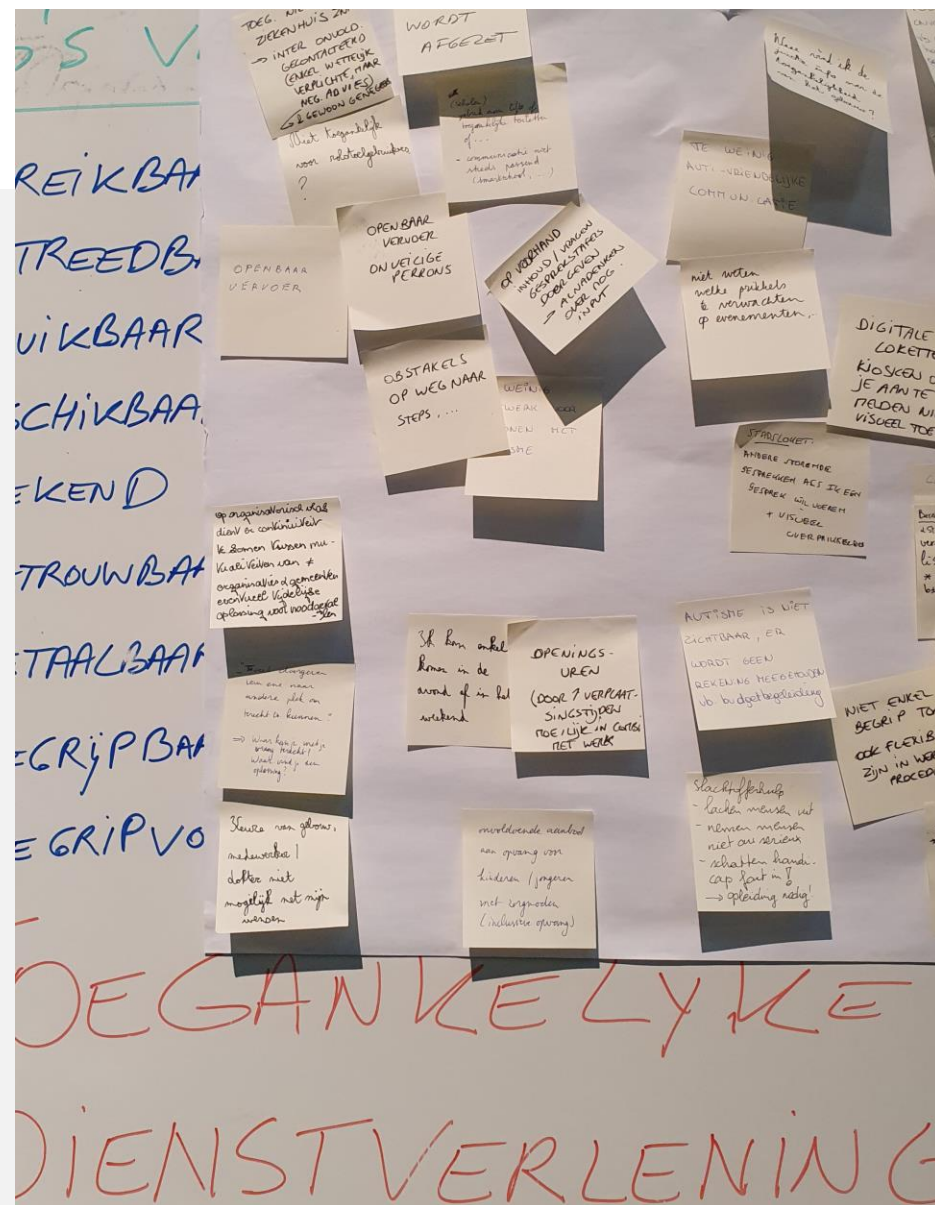 S V
REIKBAA
TREEDBA
UIKBAAR
SCHIKBAA
EKEND
TROUWBAA
TAALBAAR
EGRIJPBAA
EGRIPVO
TOEG. NI
ZIEKENHUIS ZN
→ INTER ONVOLD.
GECONTACTEERD
(ENKEL WETTELIJK
VERPLICHTE, MAAR
NEG. ADVIES)
GEWOON GENEGEERD
WORDT
AFGEZET
Niet toegankelijk
voor rolstoelgebruikers
?
toegankelijke toiletten
of ...
- communicatie niet
steeds passend
(smartschool, ...)
Waar vind ik de
juiste info over de
toegankelijkheid
van het gebouw?
TE WEINIG
AUTI-VRIENDELIJKE
COMMUNICATIE
OPENBAAR
VERVOER
OPENBAAR
VERVOER
ONVEILIGE
PERRONS
OP VOORHAND
INHOUD / VRAGEN
GESPREKSTAFELS
DOORGEVEN
→ AL NADENKEN
OVER NOG
INPUT
niet weten
welke prikkels
te verwachten
op evenementen.
DIGITALE
LOKETTE
KIOSKEN O
JE AAN TE
MELDEN NI
VISUEEL TOE
OBSTAKELS
OP WEG NAAR
STEPS, ...
WEINIG
WERK VOOR
NEN MET
SME
STADSLOKET:
ANDERE STORENDE
GESPREKKEN ALS IK EEN
GESPREK WIL VOEREN
+ VISUEEL
OVERPRIKKELEND
op organisatorisch vlak
dient er continuïteit
te komen tussen
organisaties & gemeenten
eventueel tijdelijke
oplossing voor noodgeval
-len
andere plek om
terecht te kunnen?
⇒ Waar kan je met je
vraag terecht?
Waar vind je een
oplossing?
Ik kan enkel
komen in de
avond of in het
weekend
OPENINGS-
UREN
(DOOR ? VERPLAAT-
SINGSTIJDEN
MOEILIJK IN COMBI
MET WERK
AUTISME IS NIET
ZICHTBAAR, ER
WORDT GEEN
REKENING MEEGEHOUDEN
vb budgetbegeleiding
NIET ENKEL
BEGRIP TO
OOK FLEXIB
ZIJN IN WER
PROCED
Keuze van gebouw,
medewerker /
dokter niet
mogelijk met mijn
wensen
onvoldoende aanbod
aan opvang voor
kinderen / jongeren
met zorgnoden
(inclusieve opvang)
Slachtofferhulp
- lachen mensen uit
- nemen mensen
niet au serieux
- schatten handi-
cap fout in!
→ opleiding nodig!
OEGANKELYKE
DIENSTVERLENING